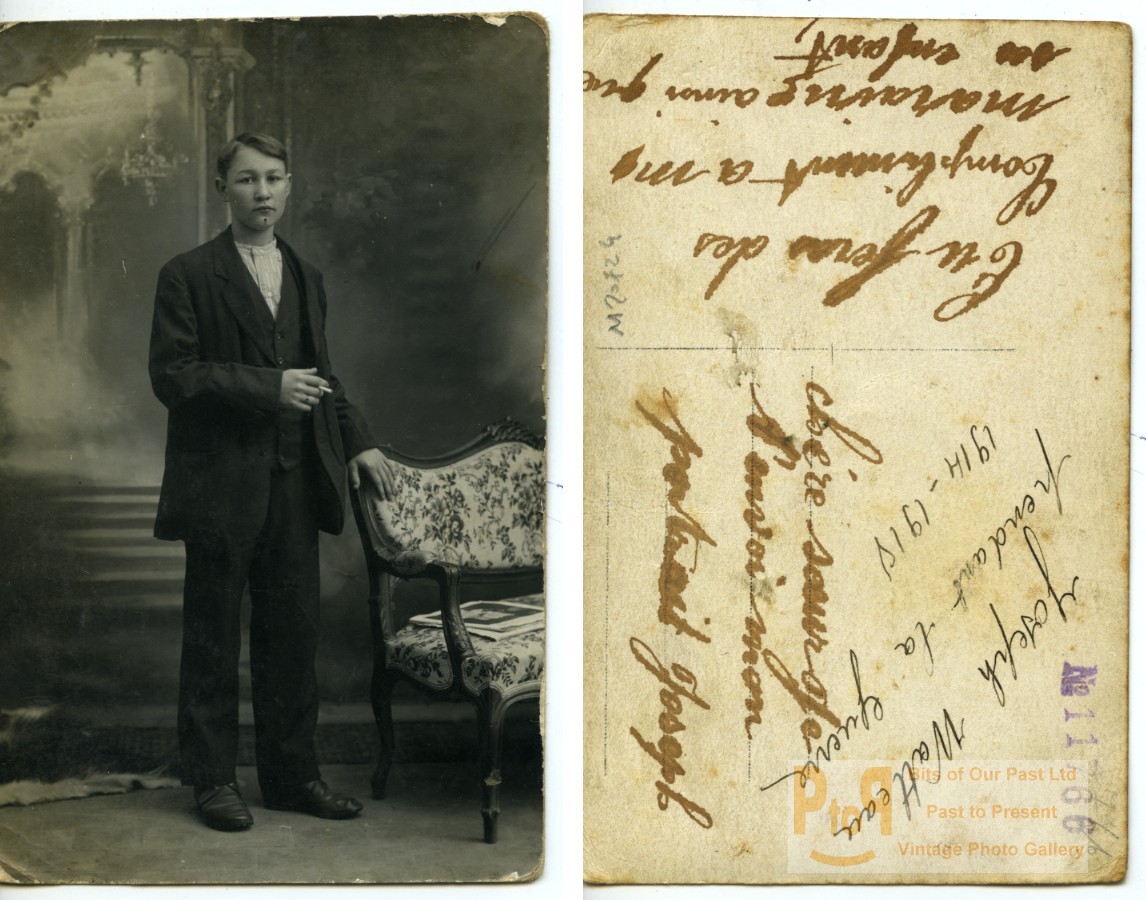 Tu feras des
Compliment a ma
maraine ainsi que
sa enfant,
M20824
chère sœur je
t'envoi mon
portrait Joseph
Joseph Watteau
pendant la guerre
1914-1918
Bits of Our Past Ltd
PtoP
Past to Present
Vintage Photo Gallery